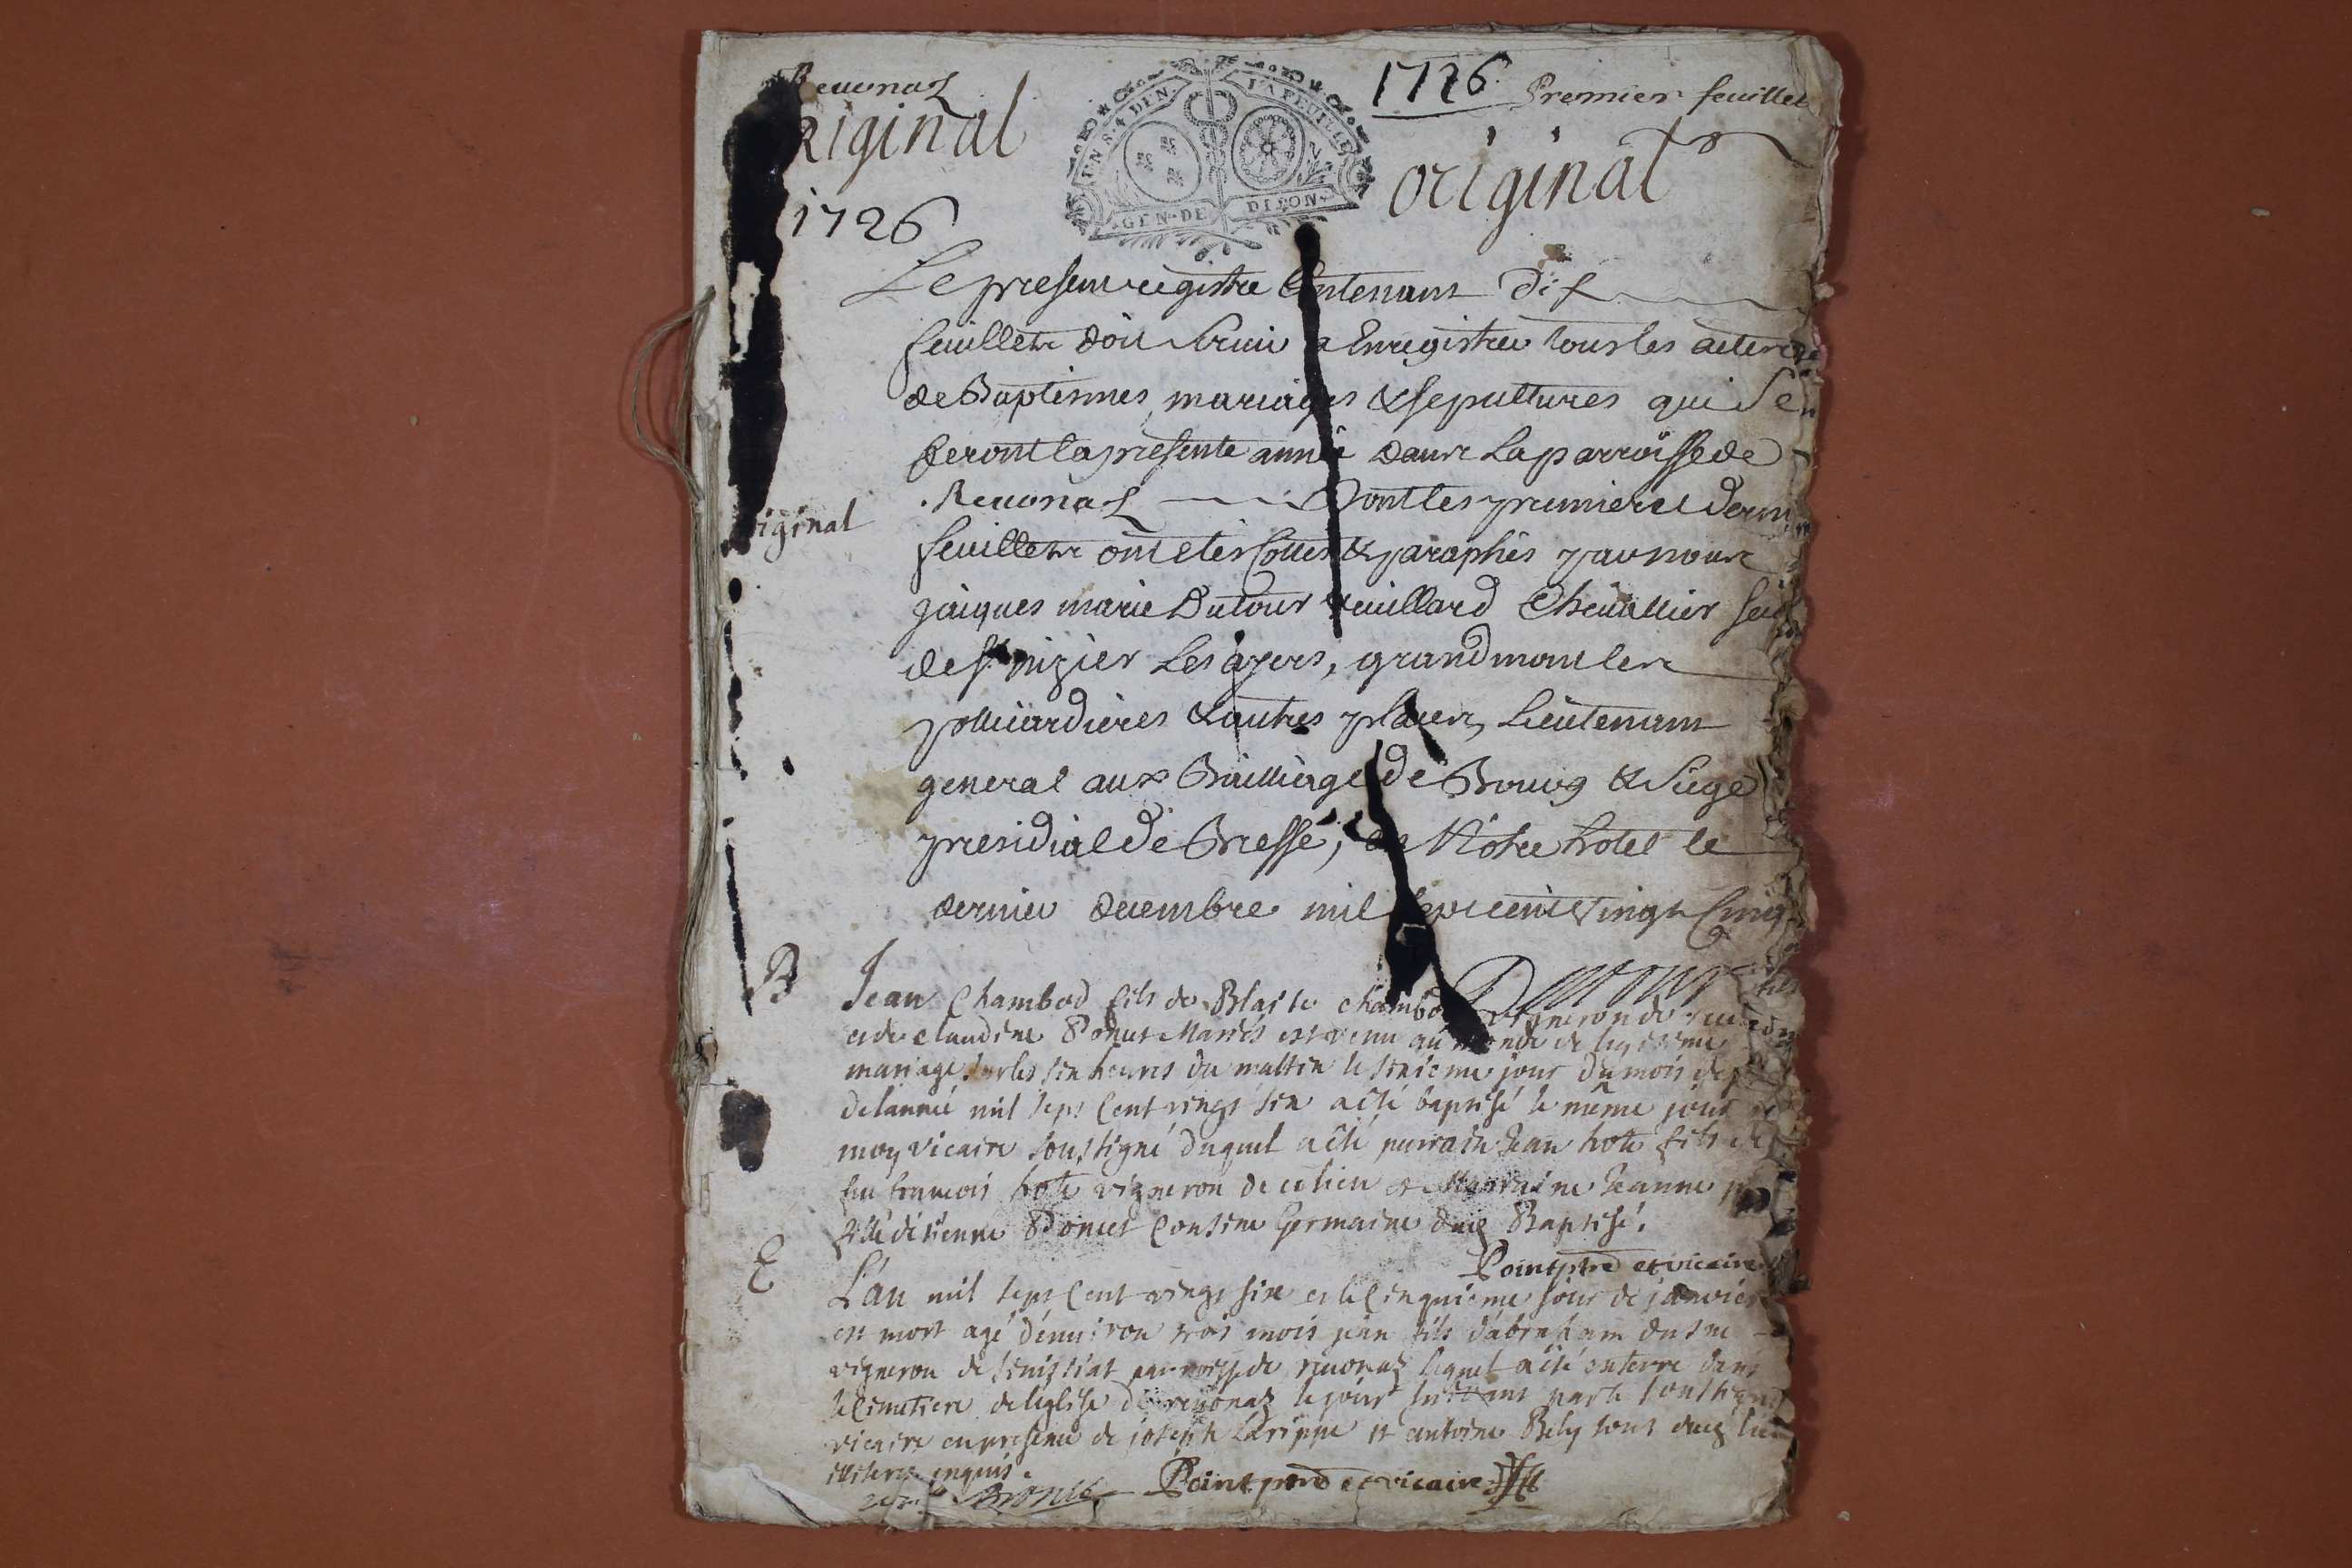 Reuonas
Original
1726
UN S. 4 DEN. LA FEUILLE
GEN. DE DIION
1726 Premier feuillet
original
Le present registre Contenant dix
feuillets doit seruir a Enregistrer tous les actes
de Baptesmes mariages & sepultures qui se
feront la presente année dans La parroisse de
Reuonas dont les premier et dern
original
feuillets ont etés Cottes & paraphés par nous
Jaiques marie Dutour Veuillard Cheuallier seig
de st nizier Les ,  grand
& autres places, Lieutenant
general aux Bailliage de Bourg & Siege
presidial de Bresse, en Notre hotel le
dernier decembre mil sept cent vingt Cinq
Dutour
B
Jean Chambod fils de Blaise Chambod vigneron de
et de claudine Poncet Mariés est venu au monde de legitime
mariage sur les six heures du mattin le sixieme jour du mois de
de lannée mil sept Cent vingt six a été baptisé le même jour
moy vicaire soussigné duquel a été parrain Jean hote fils de
feu francois hote vigneron de ce lieu et Marraine Jeanne
fille détienne Poncet Cousine Germaine dud Baptisé.
Point ptre et vicaire
E
L'an mil sept Cent vingt six et le Cinquieme jour de janvier
est mort agé d'enuiron trois mois jean fils d'abraham
vigneron de parroisse de reuonas lequel a été enterré dans
le Cimetiere de leglise de reuonas le jour suivant par le soussigné
vicaire en presence de joseph Larippe et antoine Bely tous dud lieu
illiteres enquis.
Point ptre et vicaire